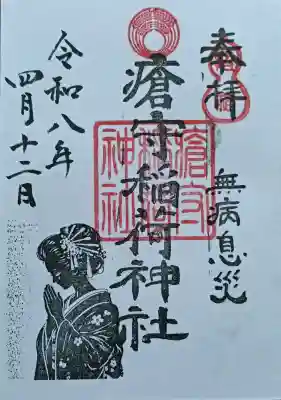 奉拝
無病息災
瘡守稲荷神社
令和八年
四月十二日
瘡守
稲荷
神社